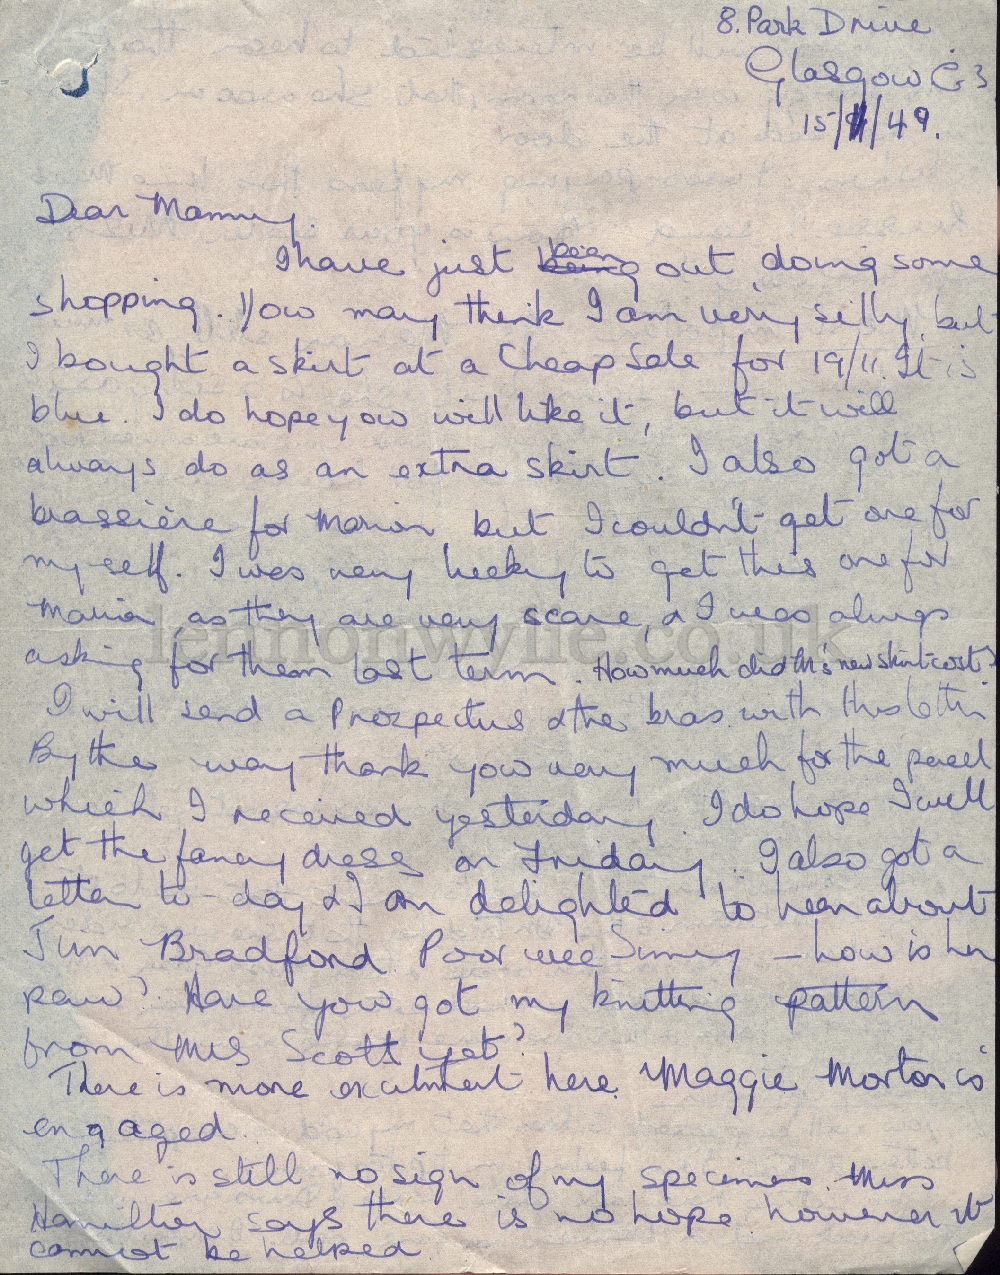 8. Park Drive
Glasgow C3
15/ /49.
Dear Mammy,
I have just been out doing some
shopping. You may think I am very silly but
I bought a skirt at a Cheap Sale for 19/11. It is
blue. I do hope you will like it, but it will
always do as an extra skirt. I also got a
brassière for Marion but I couldn't get one for
myself. I was very lucky to get this one for
Marion, as they are very scarce, & I was always
asking for them last term. How much did M's new skirt cost?
I will send a Prospectus & the bras. with this letter
By the way thank you very much for the parcel
which I received yesterday. I do hope I will
get the fancy dress on Friday. I also got a
letter to-day & I am delighted to hear about
Jim Bradford. Poor wee - how is her
paw? Have you got my knitting pattern
from Mrs Scott yet?
There is more excitment here. Maggie Morton is
engaged.
There is still no sign of my specimens. Miss
Hamilton says there is no hope however it
cannot be helped.
lennonwylie.co.uk